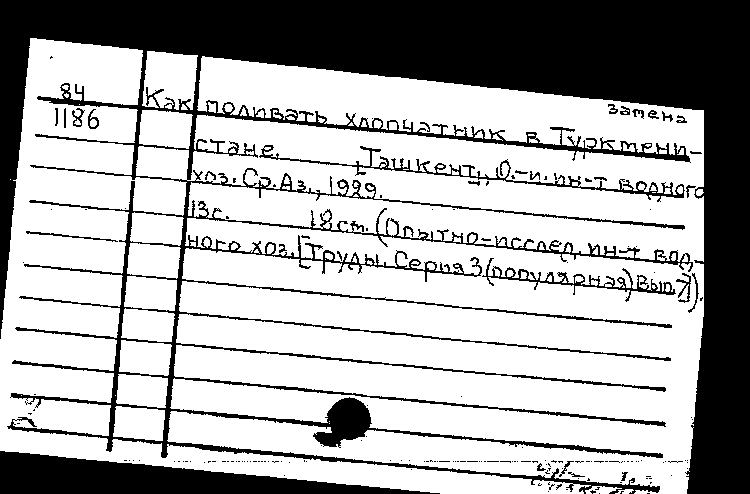 замена
84
1186
Как поливать хлопчатник в Туркмени-
стане. [Ташкент], О.-и. ин-т водного
хоз. Ср. Аз., 1929.
13с. 18см. (Опытно-исслед. ин-т вод-
ного хоз. [Труды. Серия 3 (популярная) Вып. 7]).
2